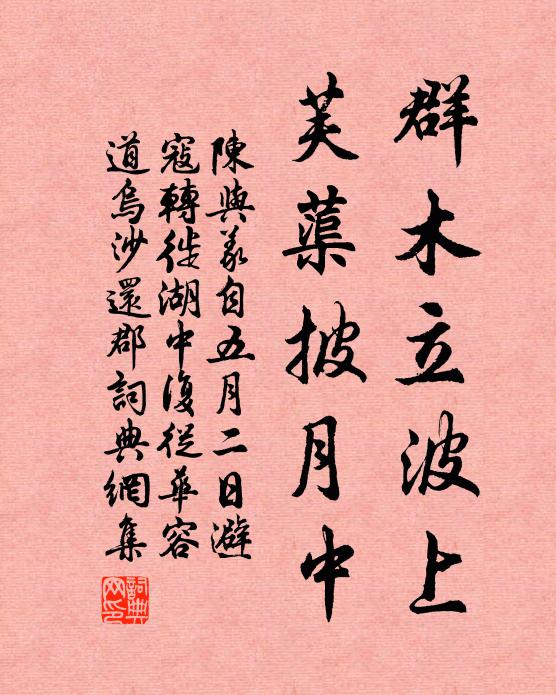 群木立波上
芙蕖披月中
陳與義自五月二日避
寇轉徙湖中復從華容
道烏沙還郡詞典網集
詞典网印